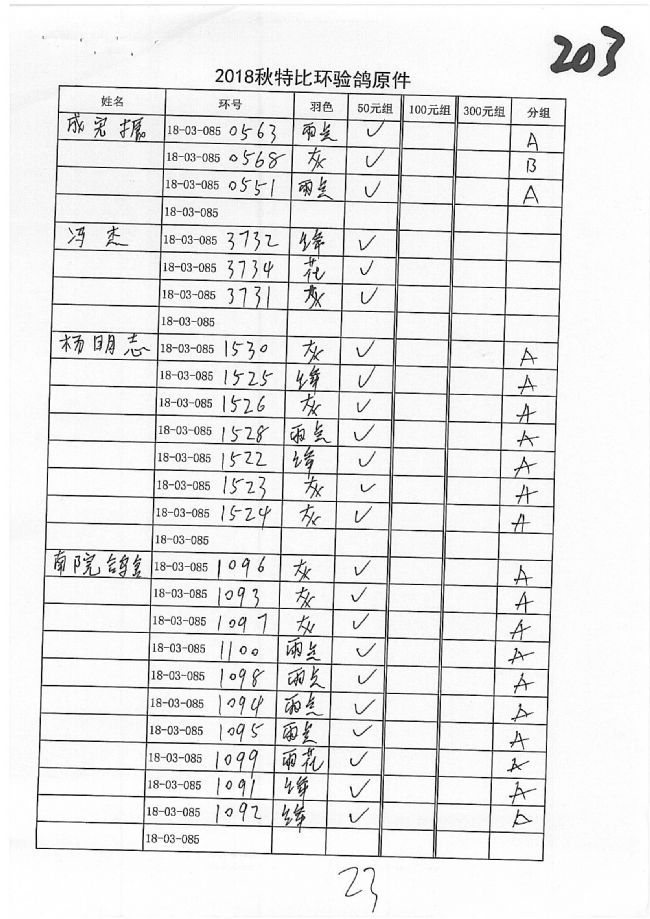 203
2018秋特比环验鸽原件
姓名 环号 羽色 50元组 100元组 300元组 分组
成完振 18-03-085 0563 雨点 ✓ A
18-03-085 0568 灰 ✓ B
18-03-085 0551 雨点 ✓ A
18-03-085
冯杰 18-03-085 3732 绛 ✓
18-03-085 3734 花 ✓
18-03-085 3731 灰 ✓
18-03-085
杨明志 18-03-085 1530 灰 ✓ A
18-03-085 1525 绛 ✓ A
18-03-085 1526 灰 ✓ A
18-03-085 1528 雨点 ✓ A
18-03-085 1522 绛 ✓ A
18-03-085 1523 灰 ✓ A
18-03-085 1524 灰 ✓ A
18-03-085
南院鸽舍 18-03-085 1096 灰 ✓ A
18-03-085 1093 灰 ✓ A
18-03-085 1097 灰 ✓ A
18-03-085 1100 雨点 ✓ A
18-03-085 1098 雨点 ✓ A
18-03-085 1094 雨点 ✓ A
18-03-085 1095 雨点 ✓ A
18-03-085 1099 雨花 ✓ A
18-03-085 1091 绛 ✓ A
18-03-085 1092 绛 ✓ A
18-03-085
23